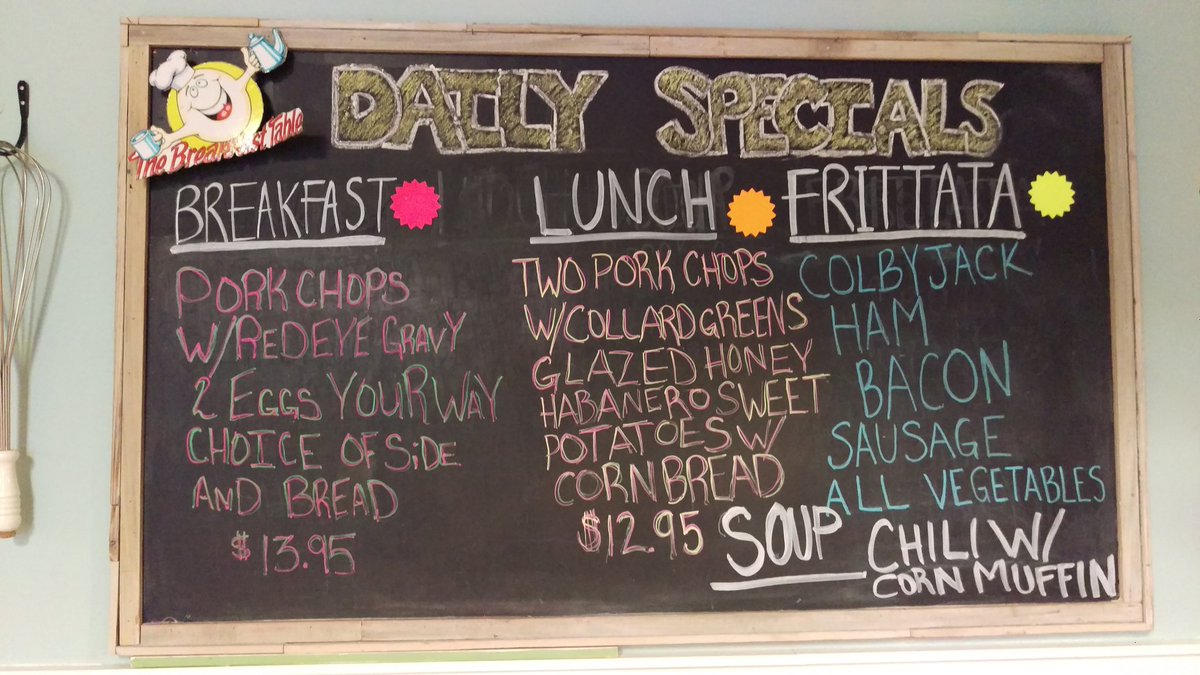 The Breakfast Table
DAILY SPECIALS
BREAKFAST
PORK CHOPS
W/REDEYE GRAVY
2 EGGS YOUR WAY
CHOICE OF SiDE
AND BREAD
$13.95
LUNCH
TWO PORK CHOPS
W/COLLARD GREENS
GLAZED HONEY
HABANERO SWEET
POTATOES W/
CORN BREAD
$12.95
FRITTATA
COLBY JACK
HAM
BACON
SAUSAGE
ALL VEGETABLES
SOUP
CHILI W/
CORN MUFFIN